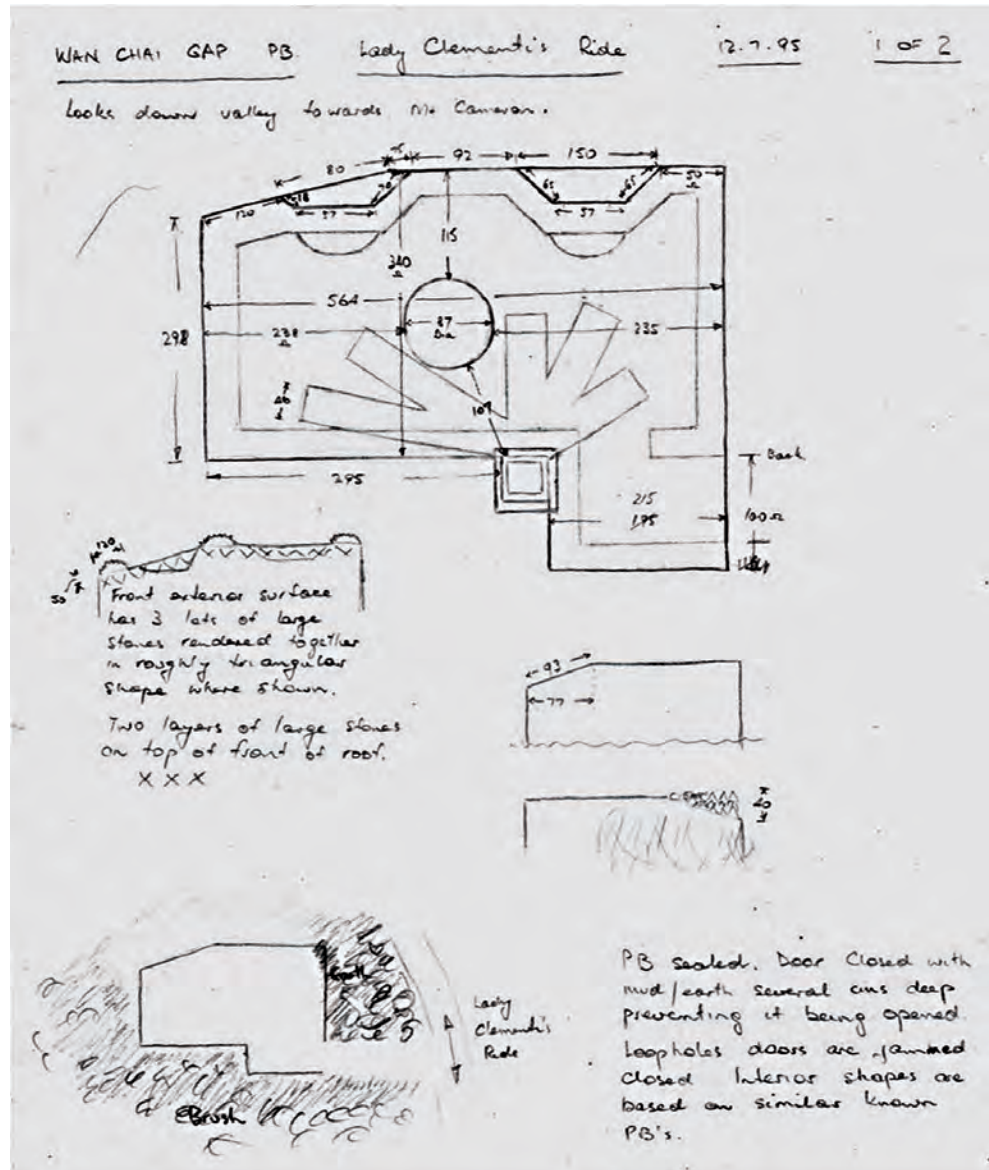 WAN CHAI GAP PB. Lady Clementi's Ride 12.7.95 1 OF 2
Looks down valley towards Mt Cameron.
80 75 92 150 50
120 18 57 70 65 57 65
115
340
564
298 238 87 Dia 235
46
107
295
Back
215
195 100
120
50
Front exterior surface
has 3 lots of large
stones rendered together
in roughly triangular
shape where shown.
Two layers of large stones
on top of front of roof.
X X X
93
77
40
Earth
Brush
Lady
Clementi's
Ride
PB sealed. Door Closed with
mud/earth several cms deep
preventing it being opened.
Loopholes doors are jammed
closed Interior shapes are
based on similar known
PB's.